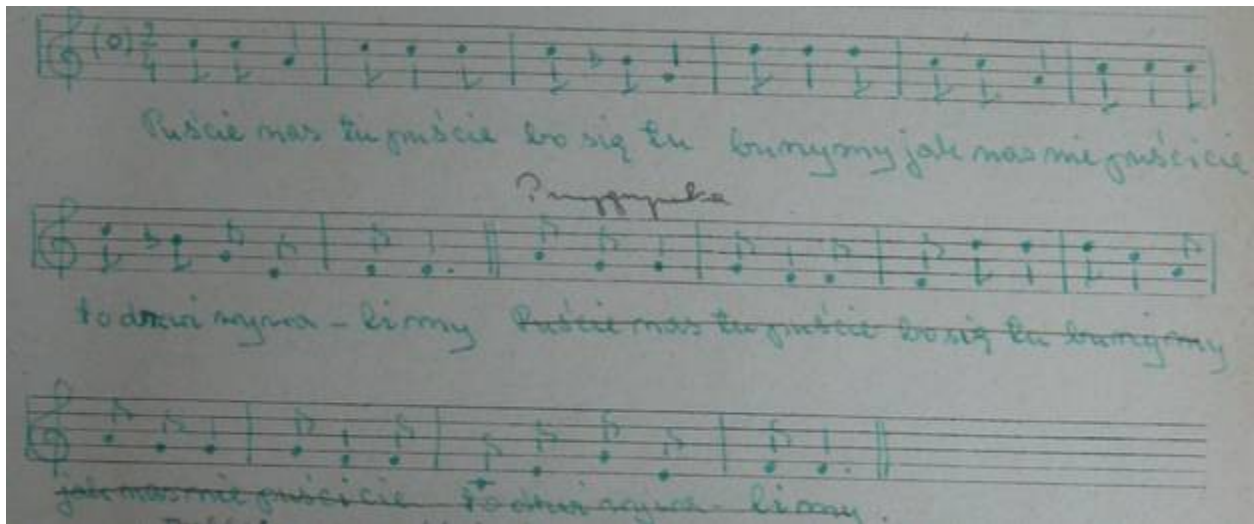 (0) 2/4
Puście nas tu puście bo się tu bunymy jak nas nie puścicie
Przygrywka
to drzwi wywa - limy Puście nas tu puście bo się tu bunymy
jak nas nie puścicie to drzwi wywa - limy.